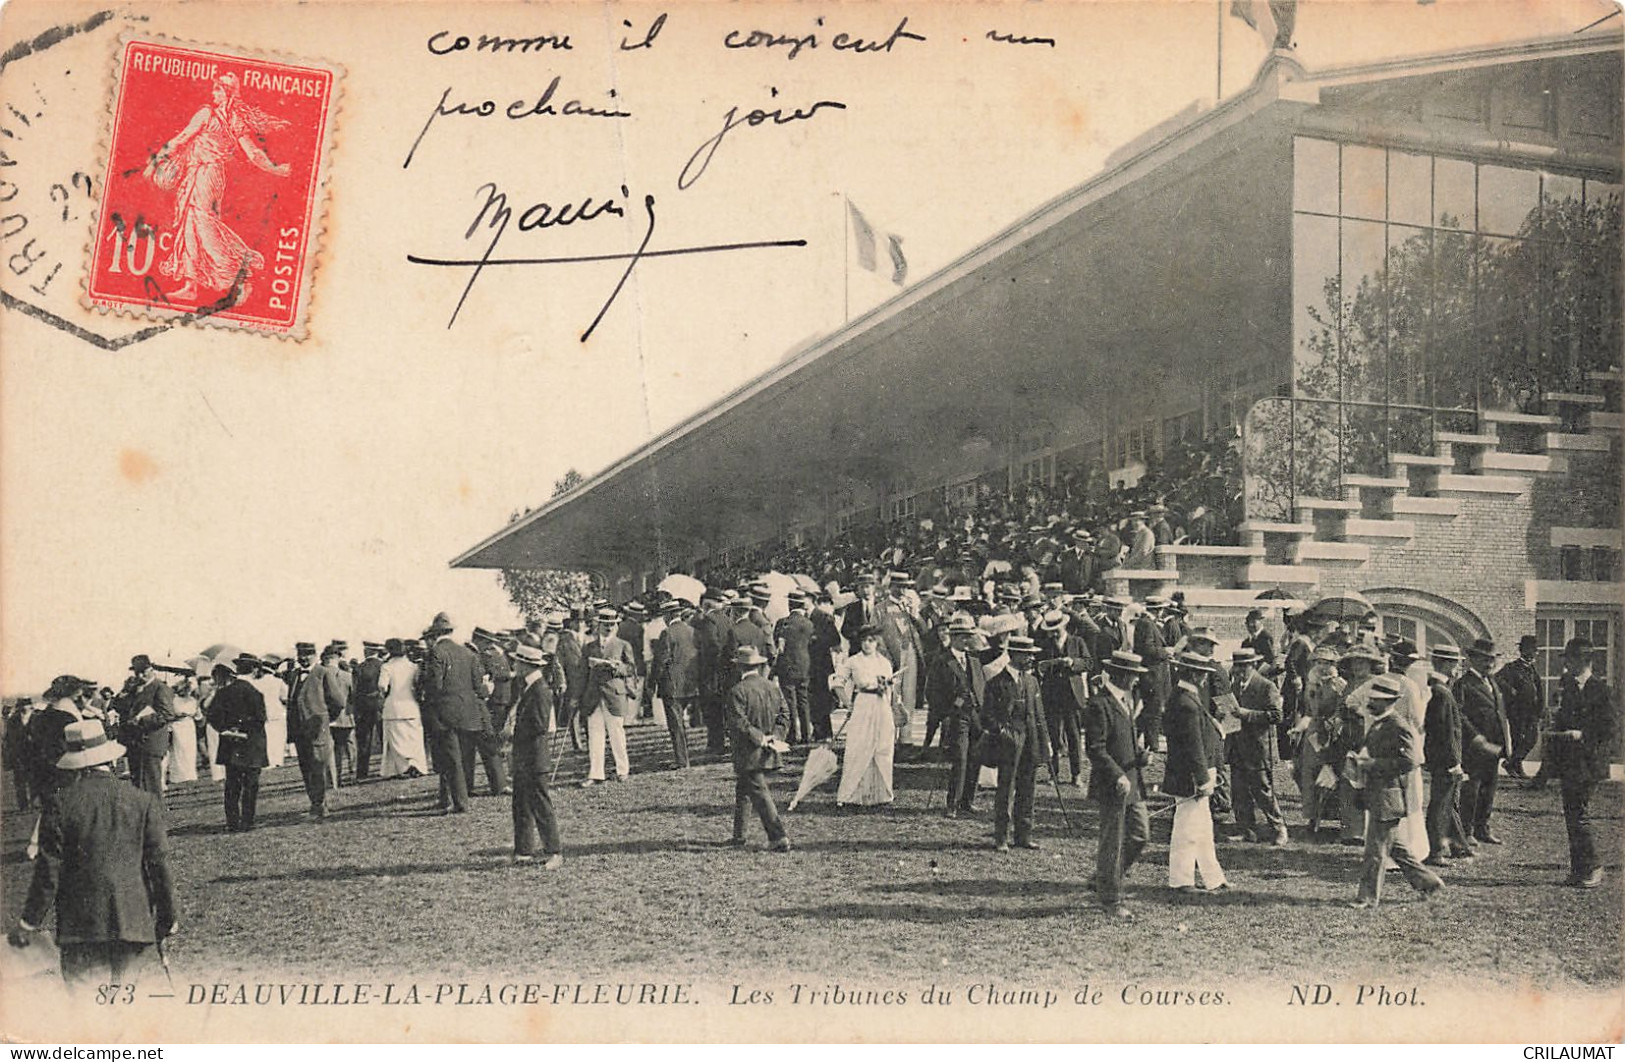 comme il convient un
prochain jour
REPUBLIQUE FRANÇAISE
10c
POSTES
TROUVIL
22 -8
14
A
873 — DEAUVILLE-LA-PLAGE-FLEURIE. Les Tribunes du Champ de Courses. ND. Phot.
www.delcampe.net
CRILAUMAT